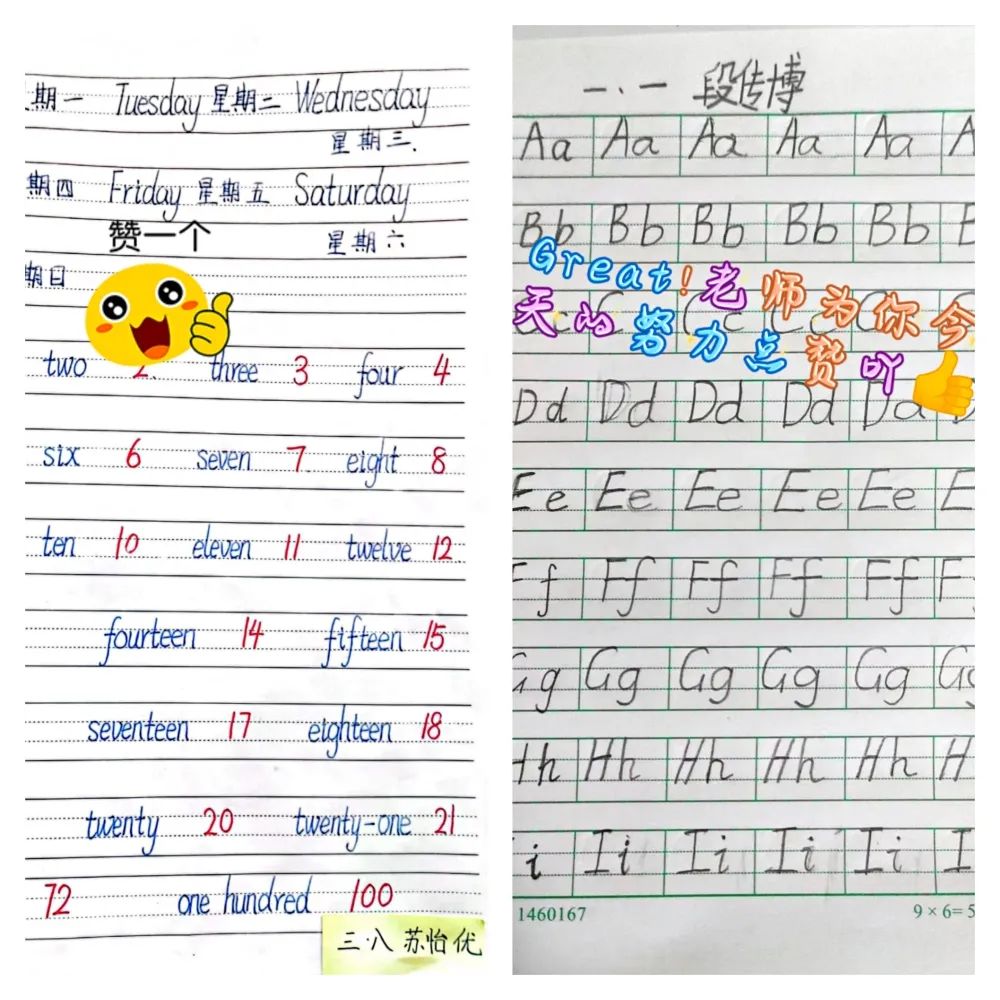 期一 Tuesday 星期二 Wednesday
星期三.
期四 Friday 星期五 Saturday
赞一个
星期六
期日
two 2. three 3 four 4
six 6 seven 7 eight 8
ten 10 eleven 11 twelve 12
fourteen 14 fifteen 15
seventeen 17 eighteen 18
twenty 20 twenty-one 21
72 one hundred 100
三·八 苏怡优
一.一 段传博
Aa Aa Aa Aa Aa A
Bb Bb Bb Bb Bb B
Great!老师为你今
天的努力点赞吖
c C Cc Cc C
Dd Dd Dd Dd Dd D
Ee Ee Ee Ee Ee E
Ff Ff Ff Ff Ff F
Gg Gg Gg Gg Gg G
Hh Hh Hh Hh Hh H
i Ii Ii Ii Ii I
1460167 9×6=5